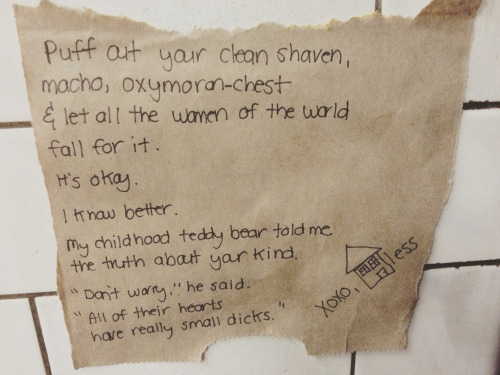 Puff out your clean shaven,
macho, oxymoron-chest
& let all the women of the world
fall for it.
It's okay.
I know better.
My childhood teddy bear told me
the truth about your kind.
"Don't worry," he said.
"All of their hearts
have really small dicks."
XOXO, less